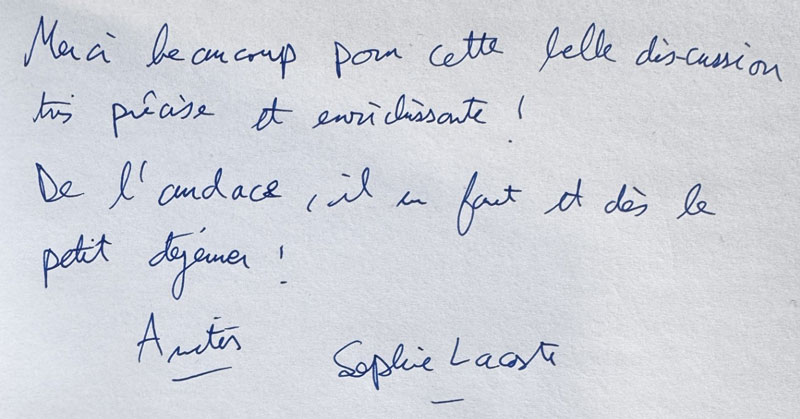 Merci beaucoup pour cette belle discussion
très précise et enrichissante !
De l'audace, il en faut et dès le
petit déjeuner !
Amitiés
Sophie Lacoste